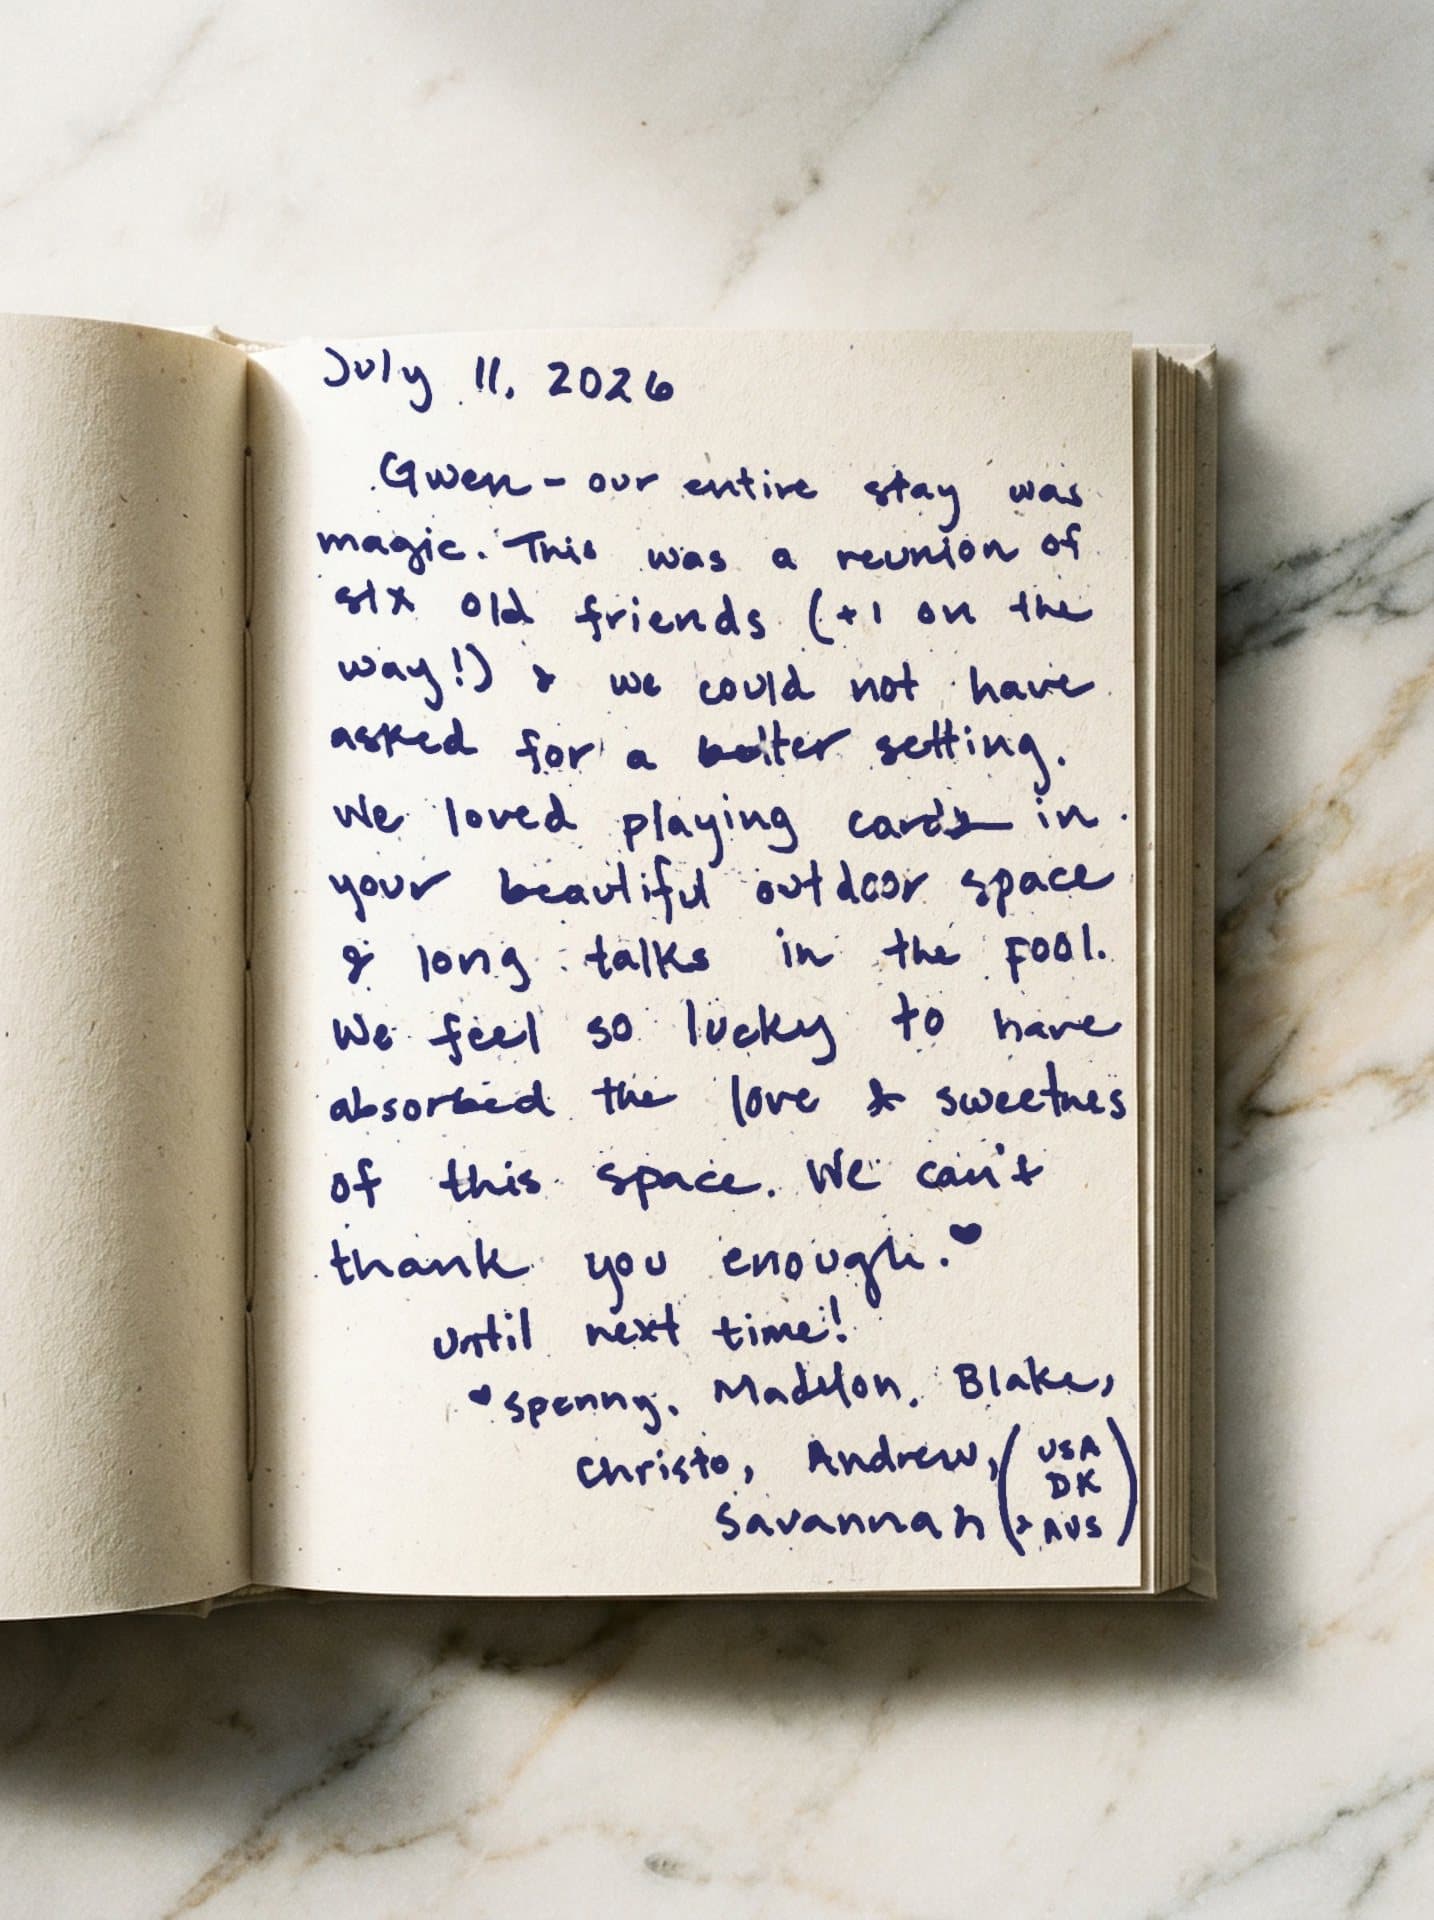 July 11, 2026
Gwen - our entire stay was
magic. This was a reunion of
six old friends (+1 on the
way!) & we could not have
asked for a better setting.
We loved playing cards in
your beautiful outdoor space
& long talks in the pool.
We feel so lucky to have
absorbed the love & sweetness
of this space. We can't
thank you enough.♥
Until next time!
♥ Spenny, Madelon, Blake,
Christo, Andrew, (USA
DK
Savannah & AUS)